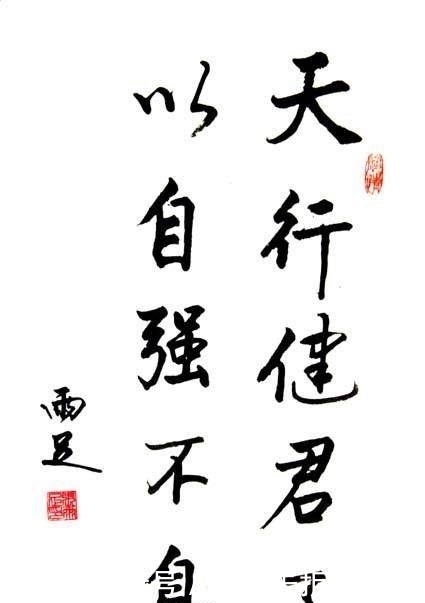 天行健君
以自强不
雨